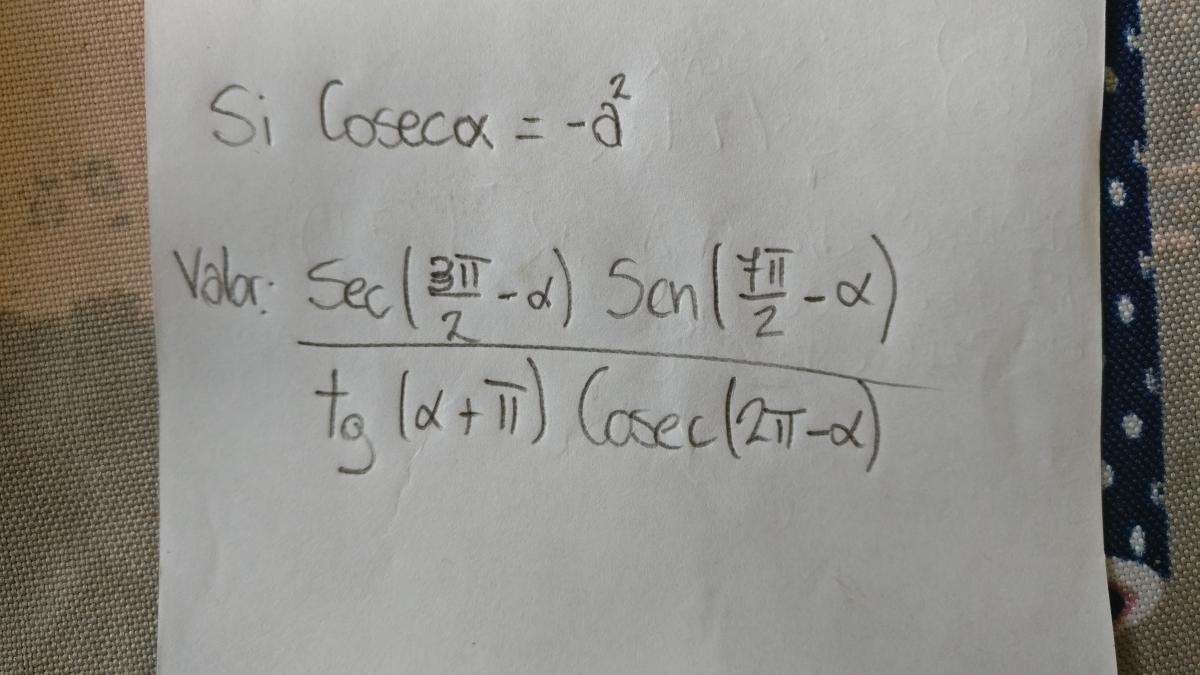 Si Cosecα = -a²
Valor: Sec(3π/2 - α) Sen(7π/2 - α)
tg (α + π) Cosec(2π - α)